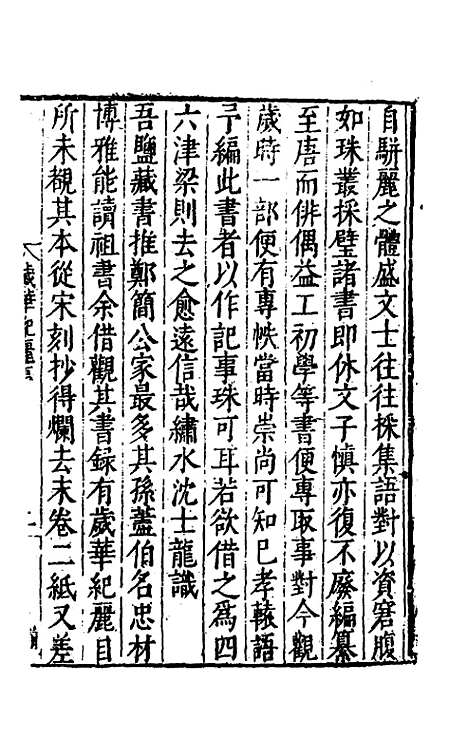 自駢麗之體盛文士往往採集語對以資窘腹
如珠叢採璧諸書即休文子慎亦復不廢編纂
至唐而俳偶益工初學等書便專取事對今觀
歲時一部便有專帙當時崇尚可知已孝轅語
予編此書者以作記事珠可耳若欲借之為四
六津梁則去之愈遠信哉繡水沈士龍識
吾鹽藏書推鄭簡公家最多其孫藎伯名忠材
博雅能讀祖書余借觀其書録有歲華紀麗目
所未覩其本從宋刻抄得爛去末卷二紙又差
歲華紀麗